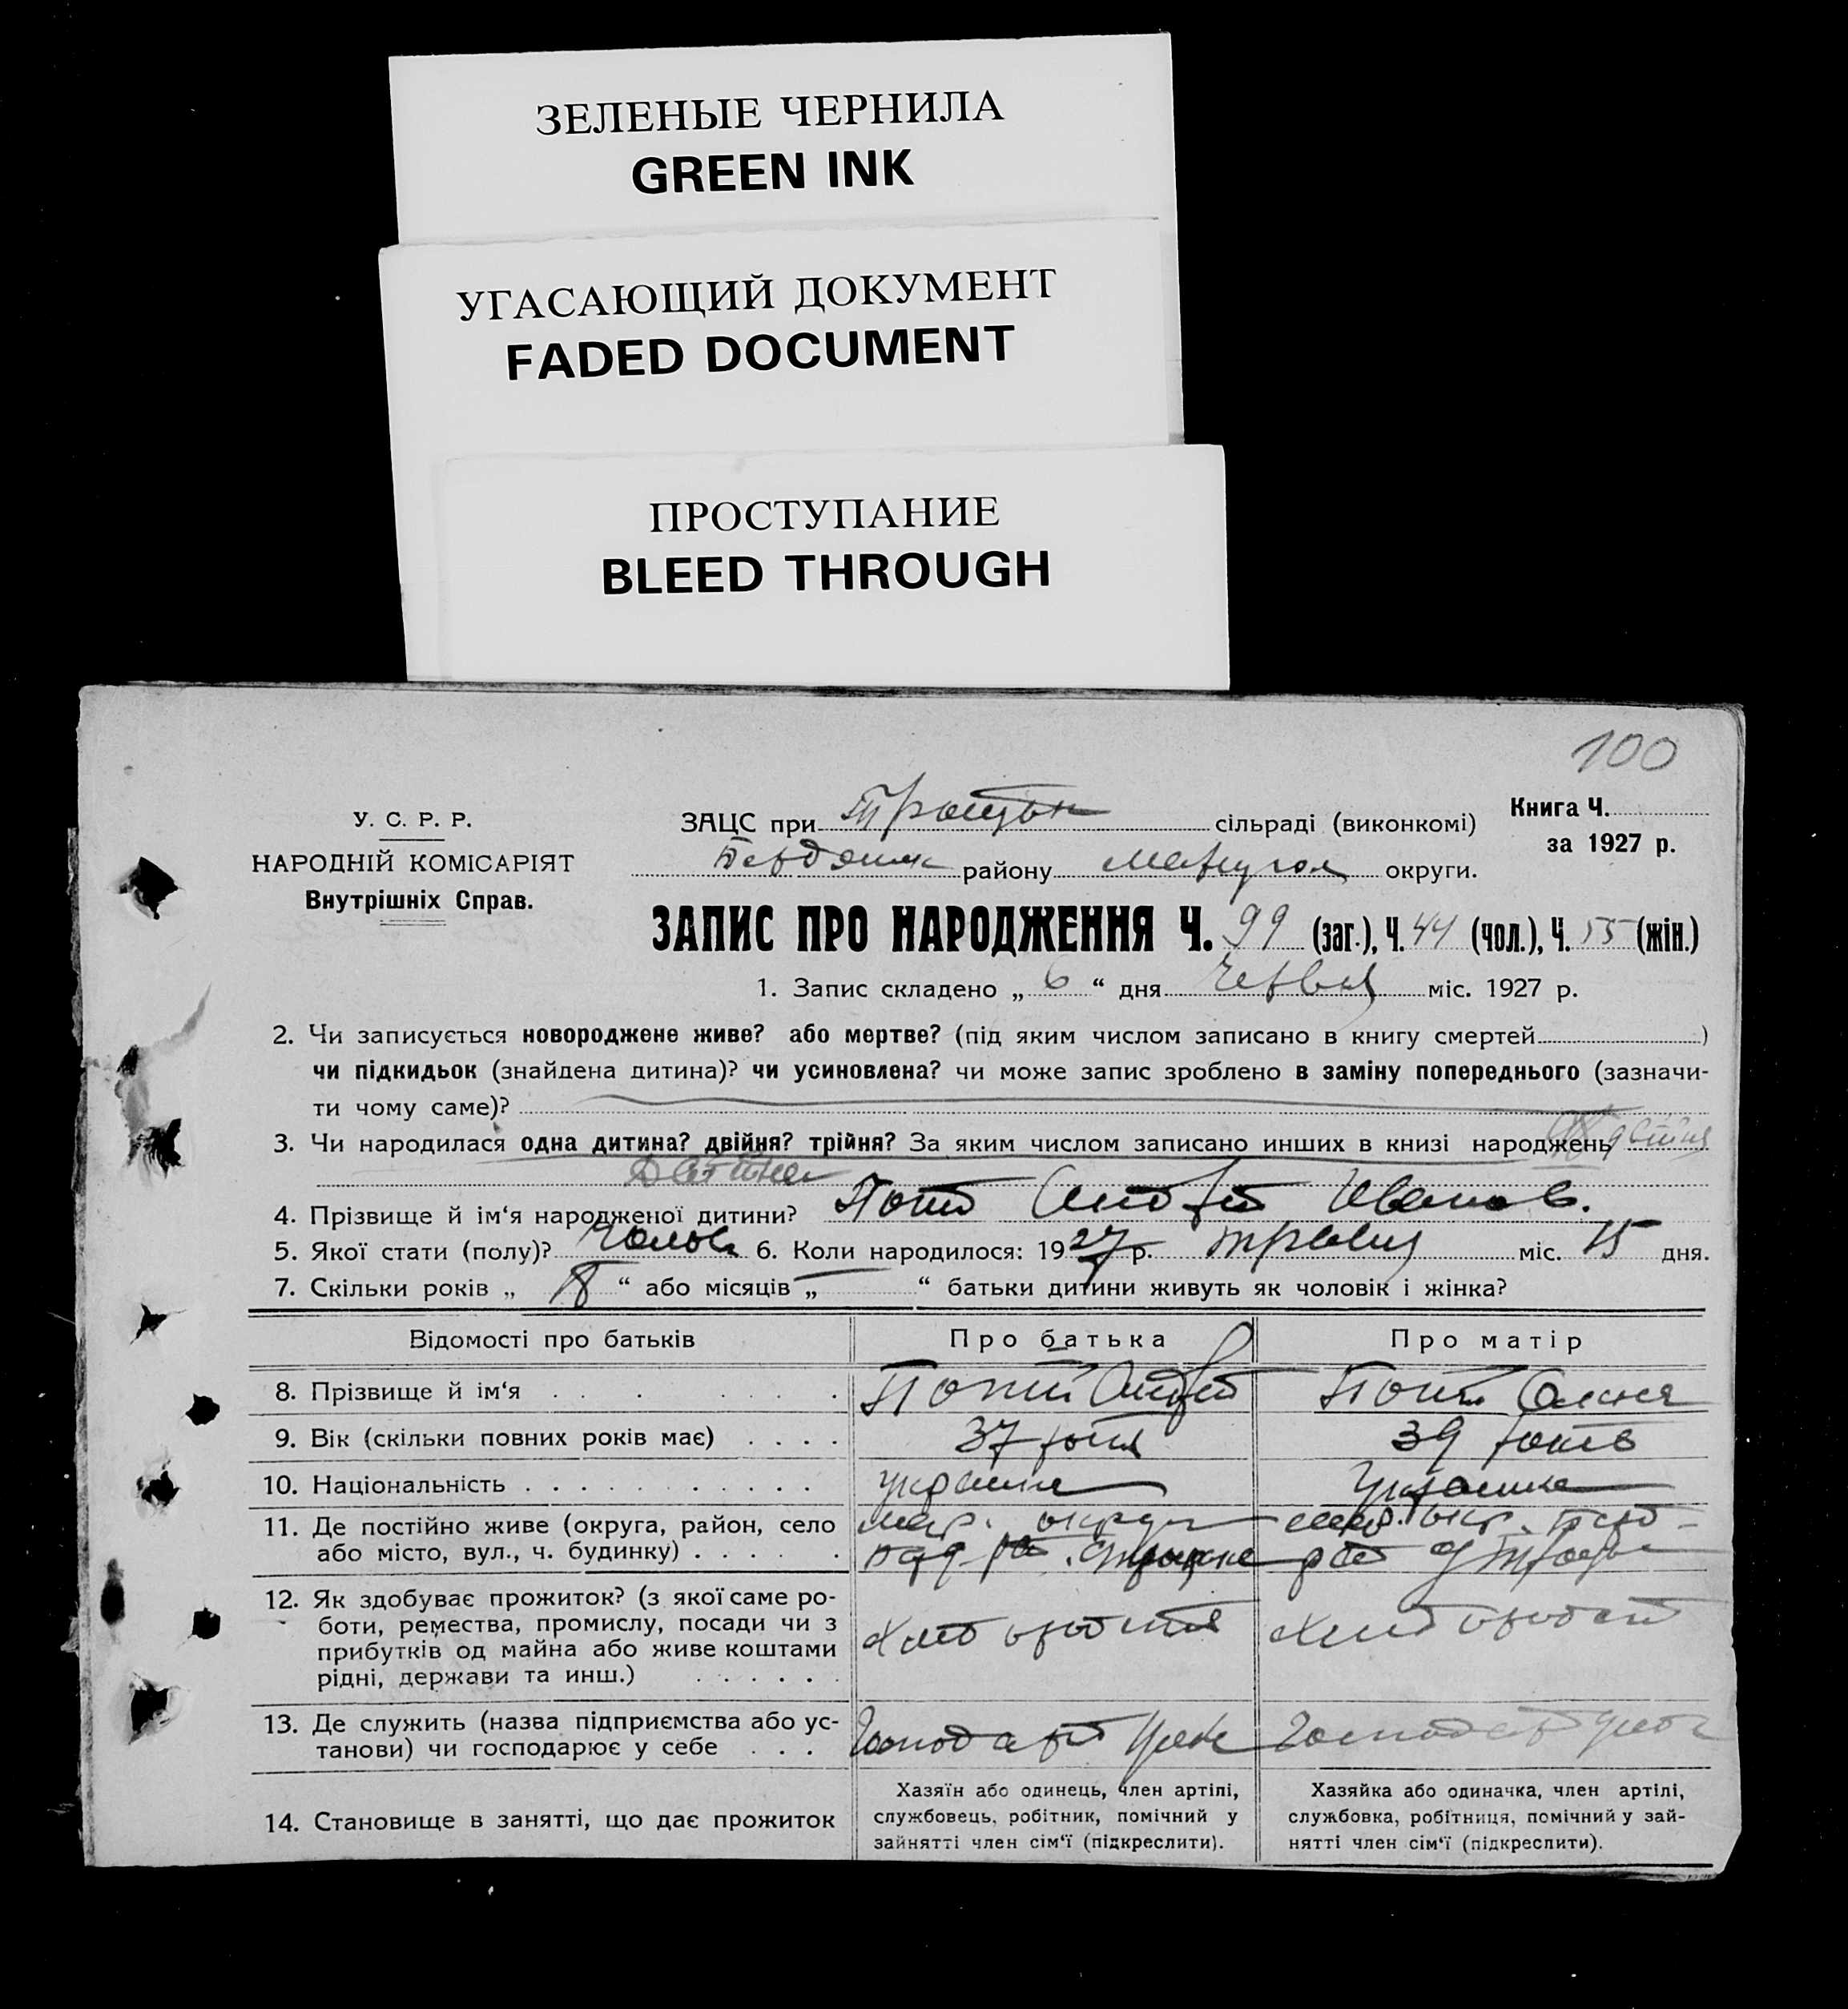 ЗЕЛЕНЫЕ ЧЕРНИЛА
GREEN INK
УГАСАЮЩИЙ ДОКУМЕНТ
FADED DOCUMENT
ПРОСТУПАНИЕ
BLEED THROUGH
100
У. С. Р. Р.
НАРОДНІЙ КОМІСАРІЯТ
Внутрішніх Справ.
ЗАЦС при сільраді (виконкомі)
району округи.
Книга Ч.
за 1927 р.
ЗАПИС ПРО НАРОДЖЕННЯ Ч. 99 (заг.), Ч. 44 (чол.), Ч. 55 (жін.)
1. Запис складено „ 6 “ дня Червня міс. 1927 р.
2. Чи записується новороджене живе? або мертве? (під яким числом записано в книгу смертей )
чи підкидьок (знайдена дитина)? чи усиновлена? чи може запис зроблено в заміну попереднього (зазначи-
ти чому саме)?
3. Чи народилася одна дитина? двійня? трійня? За яким числом записано инших в книзі народжень
4. Прізвище й ім‘я народженої дитини?
5. Якої стати (полу)? Чолов 6. Коли народилося: 1927 р. травня міс. 15 дня.
7. Скільки років „ “ або місяців „ — “ батьки дитини живуть як чоловік і жінка?
Відомості про батьків Про батька Про матір
8. Прізвище й ім‘я
9. Вік (скільки повних років має) 37 39 років
10. Національність
11. Де постійно живе (округа, район, село
або місто, вул., ч. будинку)
12. Як здобуває прожиток? (з якої саме ро-
боти, ремества, промислу, посади чи з
прибутків од майна або живе коштами
рідні, держави та инш.)
13. Де служить (назва підприємства або ус-
танови) чи господарює у себе
14. Становище в занятті, що дає прожиток
Хазяїн або одинець, член артілі,
службовець, робітник, помічний у
зайнятті член сім‘ї (підкреслити).
Хазяйка або одиначка, член артілі,
службовка, робітниця, помічний у зай-
нятті член сім‘ї (підкреслити).